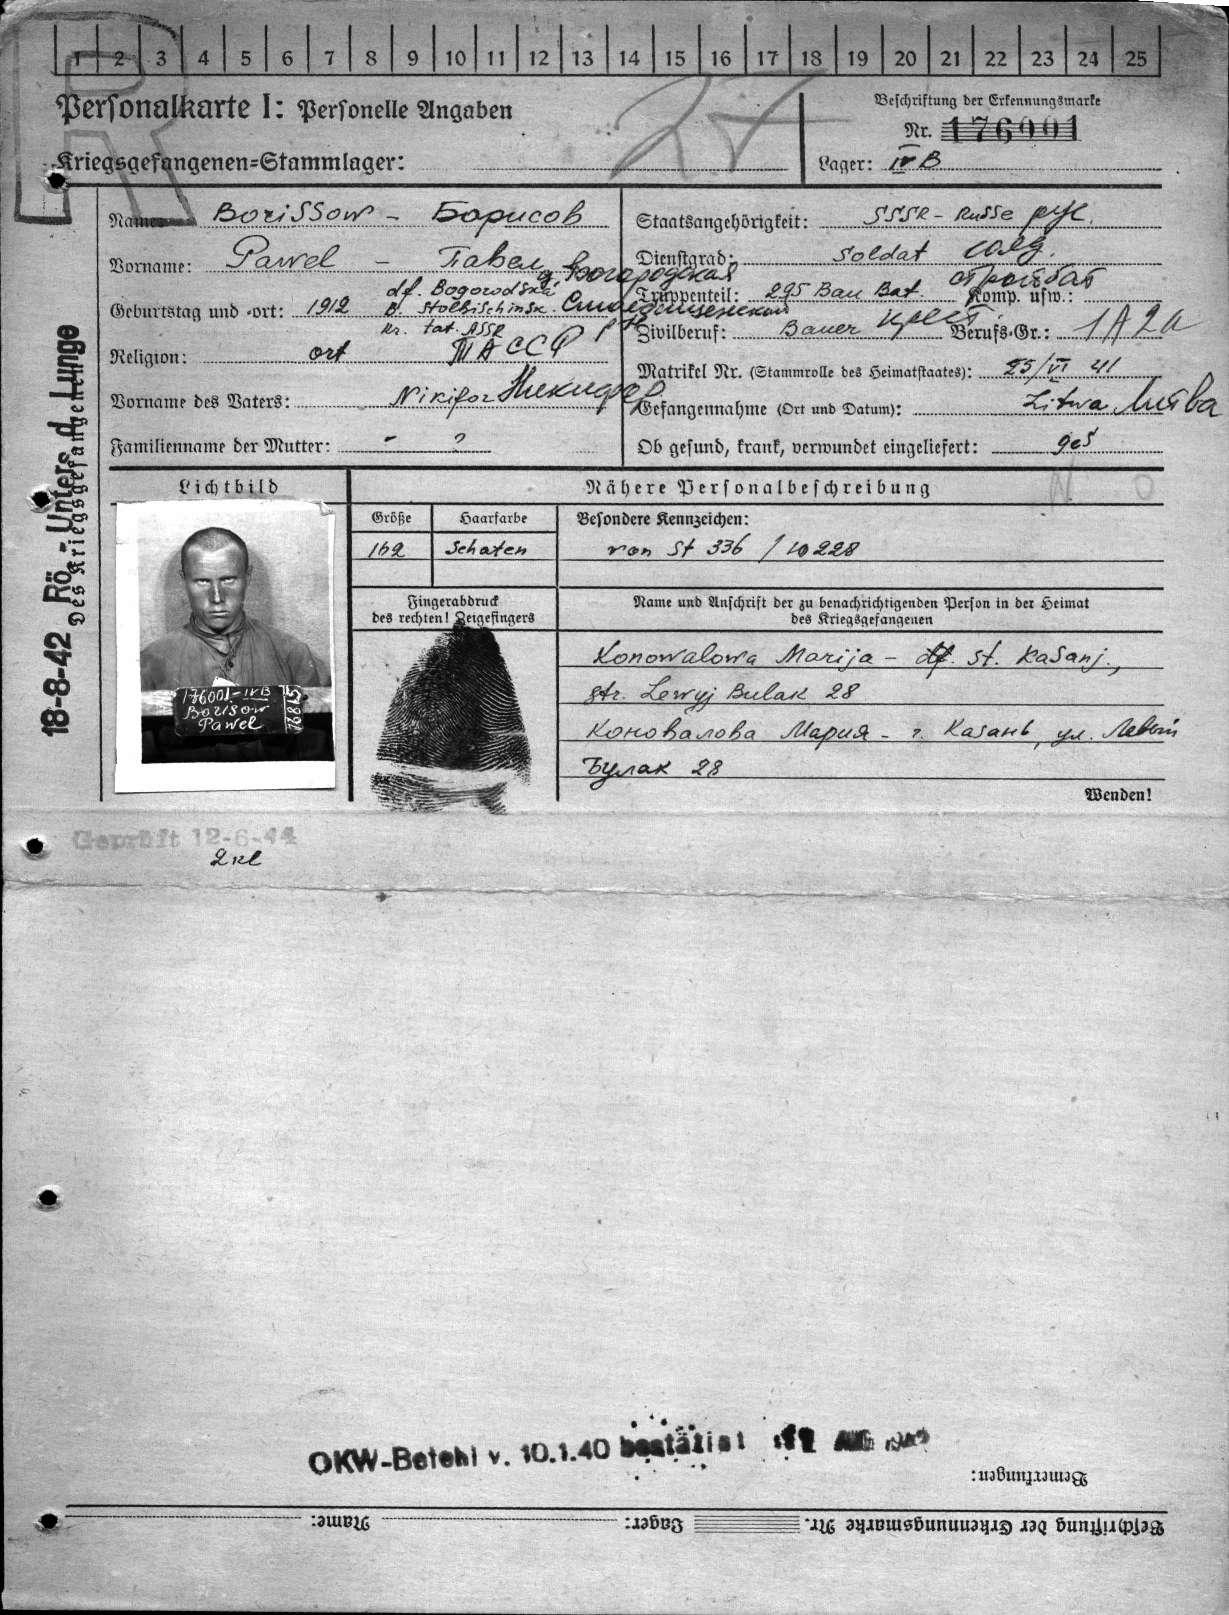 1 2 3 4 5 6 7 8 9 10 11 12 13 14 15 16 17 18 19 20 21 22 23 24 25
Personalkarte I: Personelle Angaben
27
Beschriftung der Erkennungsmarke
Nr. 176001
Kriegsgefangenen-Stammlager:
Lager: IV B
Name: Borissow - Борисов
Vorname: Pawel - Павел
д. Богородская
df. Bogorodska,
Geburtstag und -ort: 1912 B. Stolbischinsk.
kr. tat. ASSR
Religion: ort ТАССР
Vorname des Vaters: Nikifor Никифор
Familienname der Mutter: - ?
Staatsangehörigkeit: SSSR - Russe рус.
Dienstgrad: Soldat солд.
стройбат
Truppenteil: 295 Bau Bat. Komp. usw.:
Zivilberuf: Bauer крест. Berufs-Gr.: 1A2a
Matrikel Nr. (Stammrolle des Heimatstaates): 25/VI 41
Gefangennahme (Ort und Datum): Litwa Литва
Ob gesund, krank, verwundet eingeliefert: ges
18-8-42 Rö.-Unters. d. Lunge
Des Kriegsgefangenen
Lichtbild
Nähere Personalbeschreibung
N O
Größe Haarfarbe Besondere Kennzeichen:
162 Schaten von St 336 / 10228
Fingerabdruck
des rechten! Zeigefingers
Name und Anschrift der zu benachrichtigenden Person in der Heimat
des Kriegsgefangenen
Konowalowa Marija - df. st. Kasanj.,
str. Lewyj Bulak 28
Коновалова Мария - г. Казань, ул. Левый
Булак 28
176001-IVB
Borisow
Pawel
Wenden!
Geprüft 12-6-44
2 kl
OKW-Befehl v. 10.1.40 bestätigt AUG
Bemerkungen:
Beschriftung der Erkennungsmarke Nr. Lager: Name: